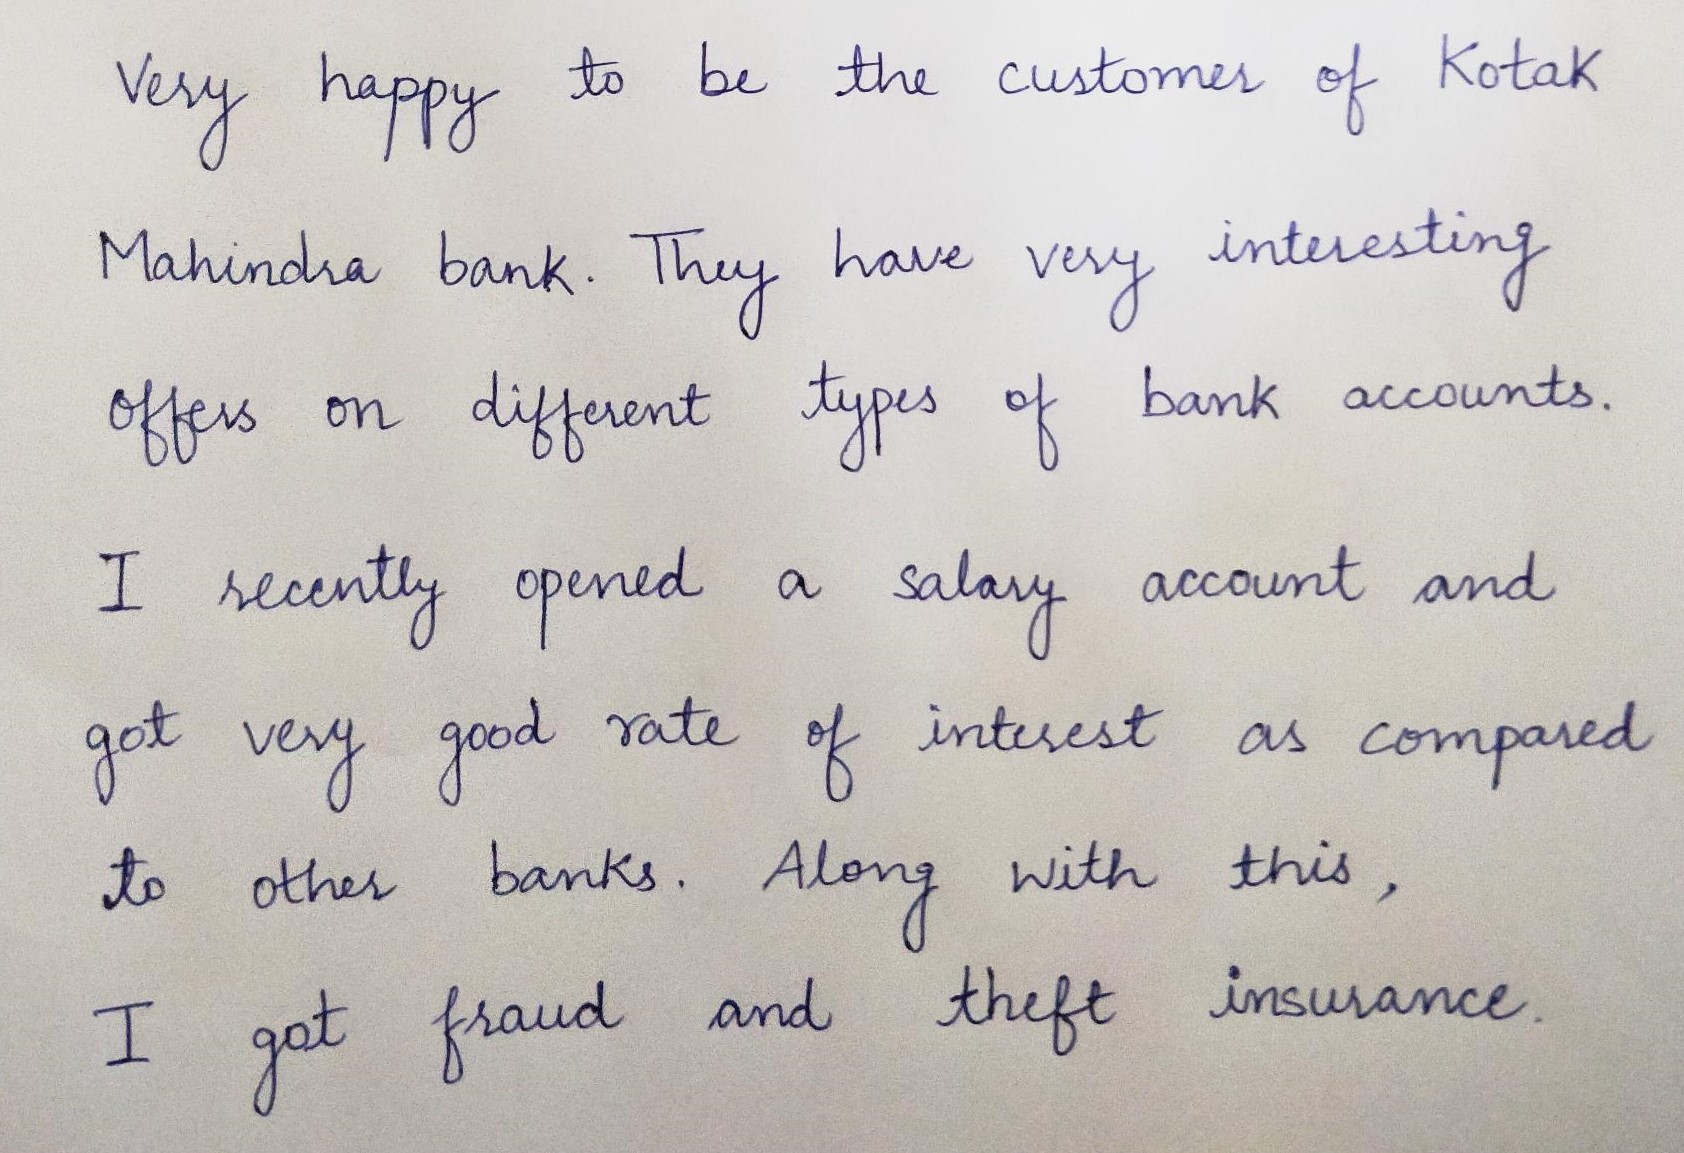 Very happy to be the customer of Kotak
Mahindra bank. They have very interesting
offers on different types of bank accounts.
I recently opened a salary account and
got very good rate of interest as compared
to other banks. Along with this,
I got fraud and theft insurance.